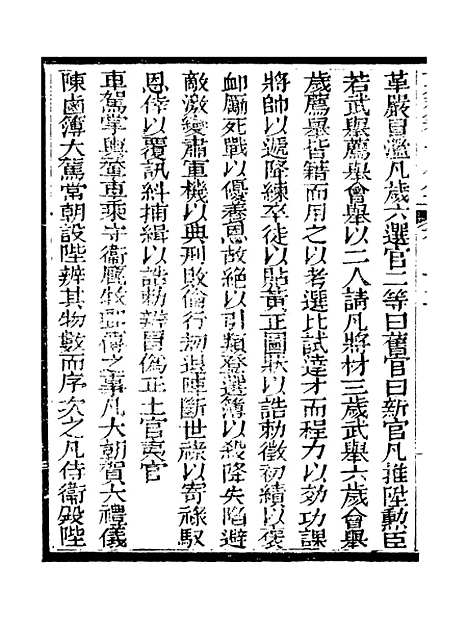 革嚴冒濫凡歲六選官二等曰舊官曰新官凡推陞勳臣
若武舉薦舉會舉以二人請凡將材三歲武舉六歲會舉
歲薦舉皆籍而用之以考選比試達才而程力以効功課
將帥以遞降練卒徒以貼黃正圖狀以誥勅徵初績以褒
卹厲死戰以優養恩故絶以引類登選簿以殺降失陷避
敵激變肅軍機以典刑敗倫行刼退陣斷世祿以寄祿馭
恩倖以覆訊糾捕緝以誥勅辨眞僞正土官夷官
車駕掌輿輦車乘守衞廐牧郵傳之事凡大朝賀大禮儀
陳鹵簿大駕常朝設陛辨其物數而序次之凡侍衞殿陛